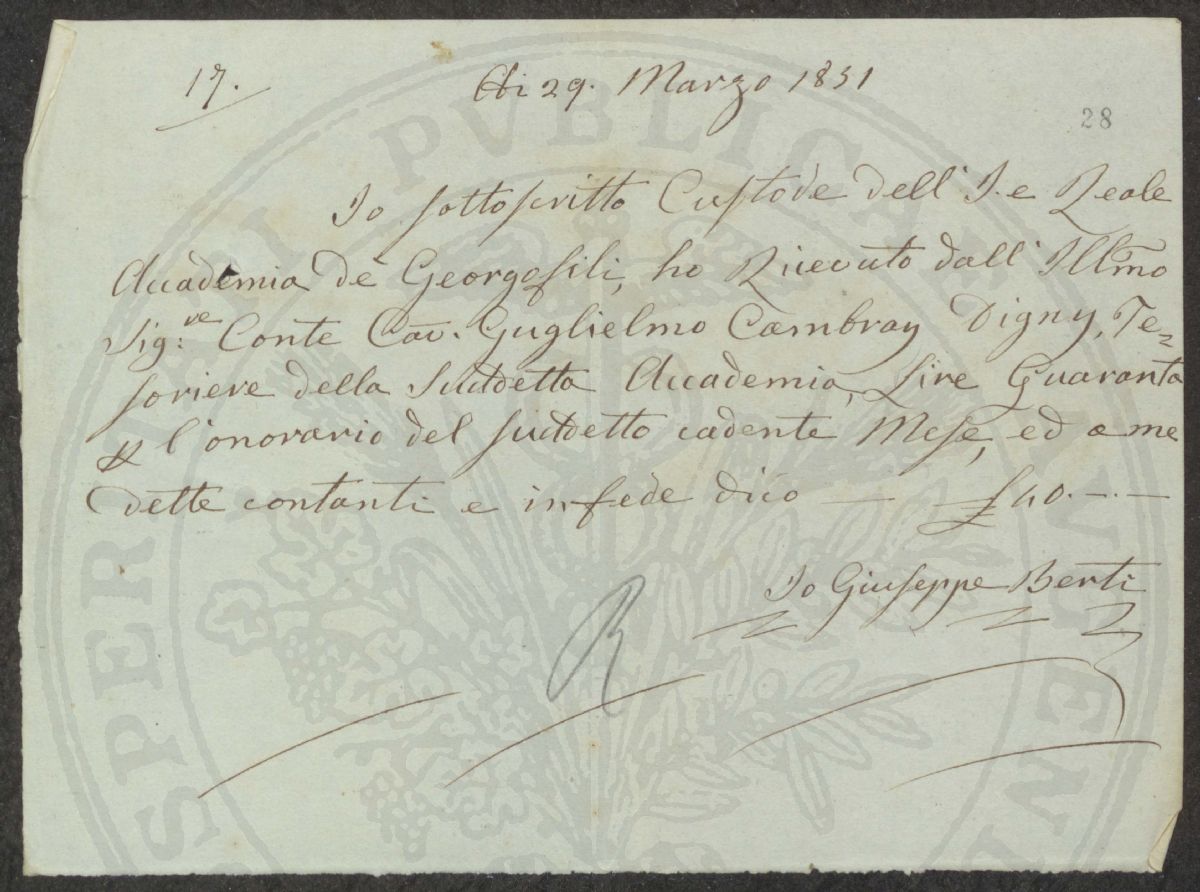 17.
Adi 29. Marzo 1851
28
Io sottoscritto Custode dell' I. e Reale
Accademia de Georgofili, ho Ricevuto dall' Illmo
Sig:re Conte Cav. Guglielmo Cambray Digny, Te=
soriere della Suddetta Accademia, Lire Quaranta
p l'onorario del suddetto cadente Mese, ed a me
dette contanti e in fede dico — £40.-.-
Io Giuseppe Berti
PROSPERITATI PVBLICAE AVGENDAE